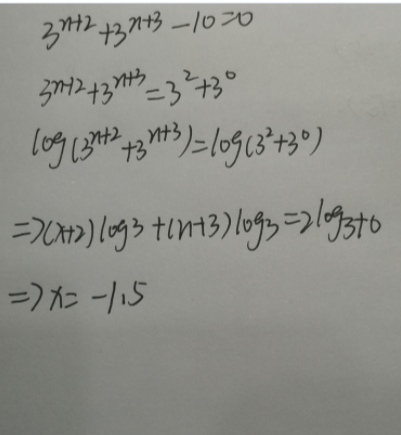 3^{x+2}+3^{x+3}-10=0
3^{x+2}+3^{x+3}=3^2+3^0
log(3^{x+2}+3^{x+3})=log(3^2+3^0)
=>(x+2)log3+(x+3)log3=2log3+0
=>x=-1.5